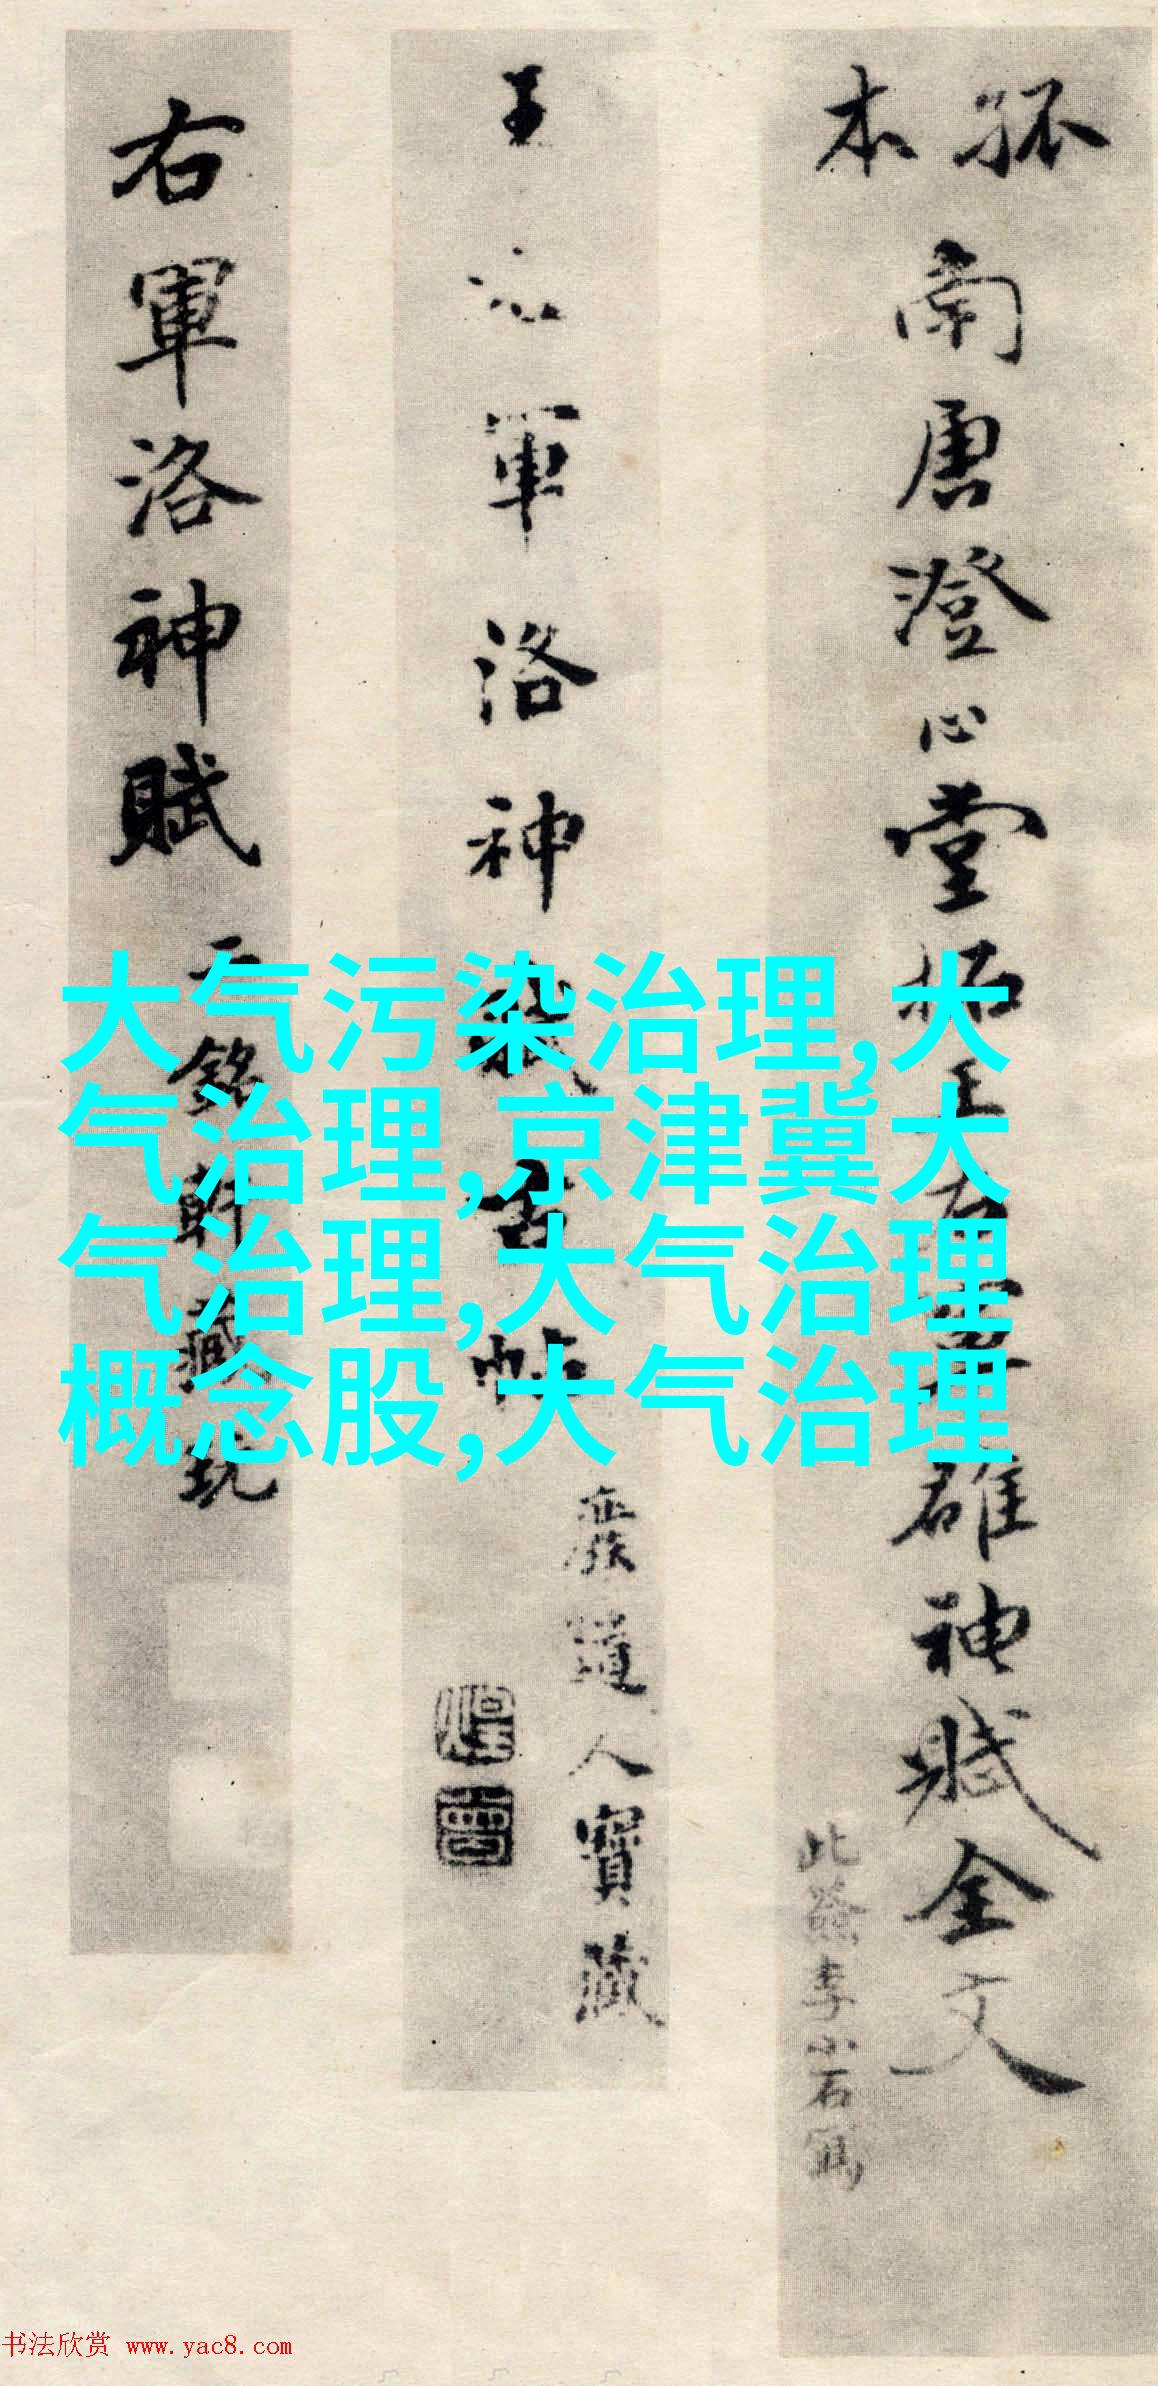 孤本
南唐澄心堂拓王右軍雒神賦全文
此籤李小石寫
王右軍洛神賦古帖
廢道人寶藏
右軍洛神賦
銘軒藏玩
大气污染治理,大
气治理,京津冀大
气治理,大气治理
概念股,大气治理
书法欣赏 www.yac8.com